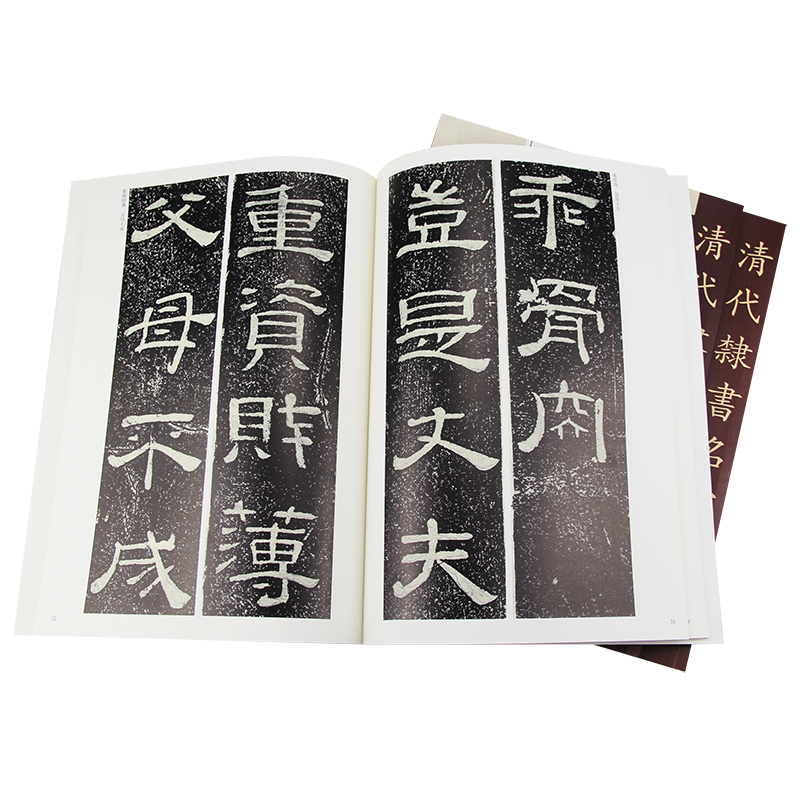 乖骨肉
豈是丈夫
重資財薄
父母不成
32
31
清代隸書名
清代